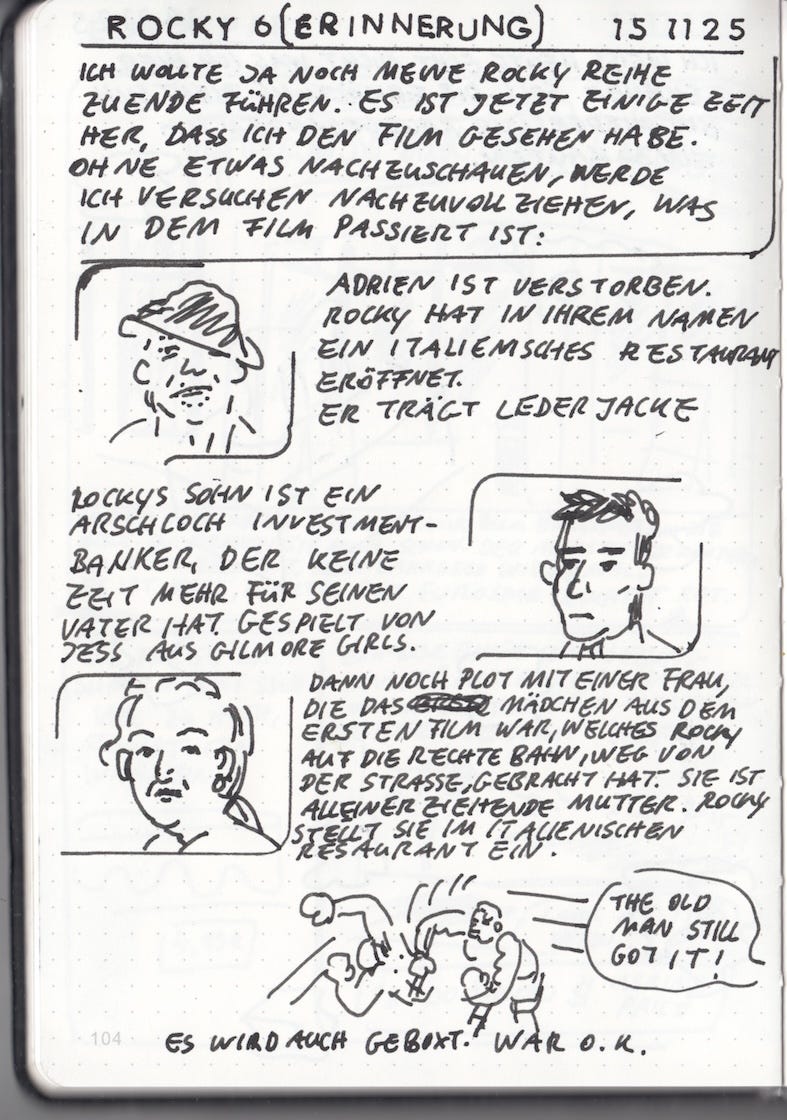 ROCKY 6 (ERINNERUNG) 15 11 25
ICH WOLLTE JA NOCH MEINE ROCKY REIHE
ZUENDE FÜHREN. ES IST JETZT EINIGE ZEIT
HER, DASS ICH DEN FILM GESEHEN HABE.
OHNE ETWAS NACHZUSCHAUEN, WERDE
ICH VERSUCHEN NACHZUVOLLZIEHEN, WAS
IN DEM FILM PASSIERT IST:
ADRIEN IST VERSTORBEN.
ROCKY HAT IN IHREM NAMEN
EIN ITALIENISCHES RESTAURANT
ERÖFFNET.
ER TRÄGT LEDERJACKE
ROCKYS SOHN IST EIN
ARSCHLOCH INVESTMENT-
BANKER, DER KEINE
ZEIT MEHR FÜR SEINEN
VATER HAT. GESPIELT VON
JESS AUS GILMORE GIRLS.
DANN NOCH PLOT MIT EINER FRAU,
DIE DAS MÄDCHEN AUS DEM
ERSTEN FILM WAR, WELCHES ROCKY
AUF DIE RECHTE BAHN, WEG VON
DER STRASSE, GEBRACHT HAT. SIE IST
ALLEINERZIEHENDE MUTTER. ROCKY
STELLT SIE IM ITALIENISCHEN
RESAURANT EIN.
THE OLD
MAN STILL
GOT IT!
104
ES WIRD AUCH GEBOXT. WAR O.K.